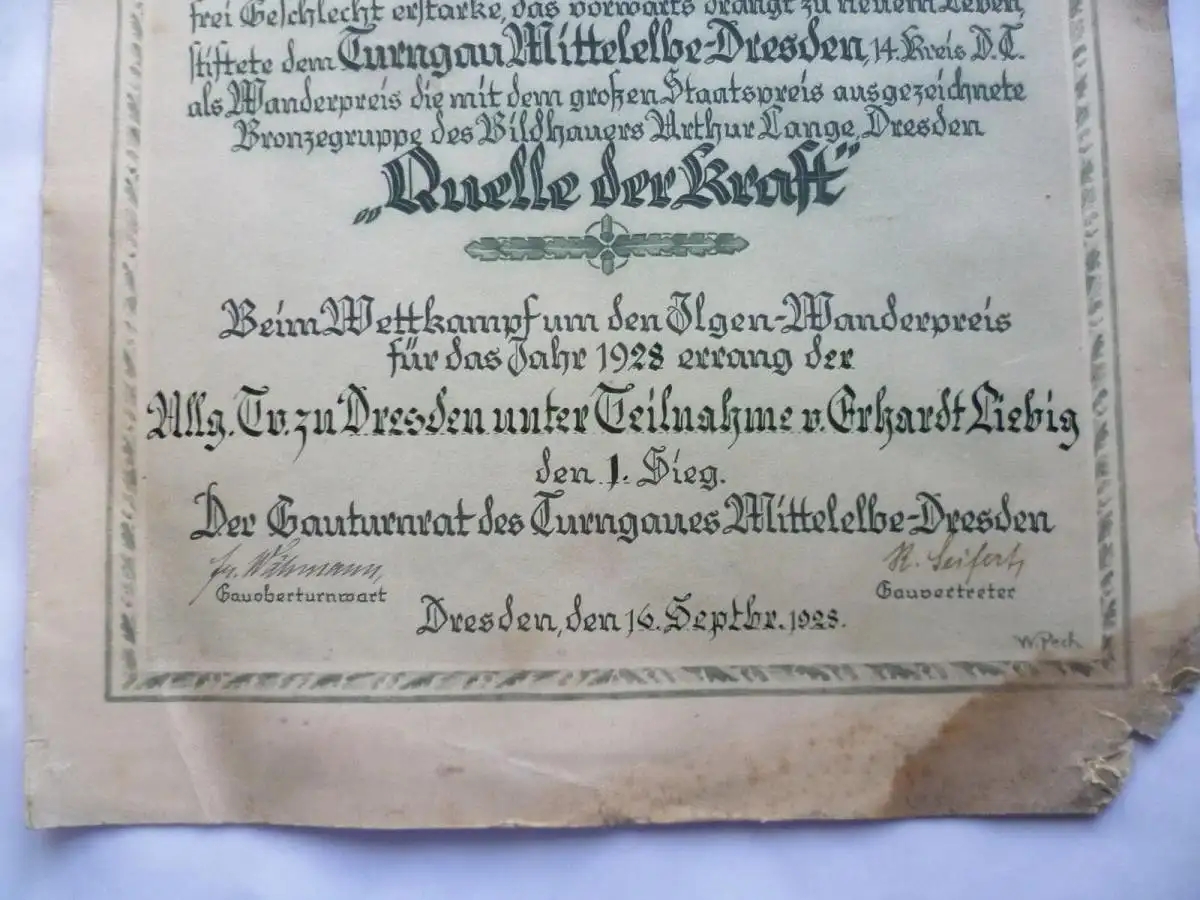 frei Geschlecht erstarke, das vorwärts drängt zu neuem Leben,
stiftete dem Turngau Mittelelbe-Dresden, 14. Kreis D.T.
als Wanderpreis die mit dem großen Staatspreis ausgezeichnete
Bronzegruppe des Bildhauers Arthur Lange, Dresden
„Quelle der Kraft“
Beim Wettkampf um den Ilgen-Wanderpreis
für das Jahr 1928 errang der
Allg. Tv. zu Dresden unter Teilnahme v. Erhardt Liebig
den 1. Sieg.
Der Gauturnrat des Turngaues Mittelelbe-Dresden
R. Seifert
Gauoberturnwart Gauvertreter
Dresden, den 16. Septbr. 1928.
W. Pech